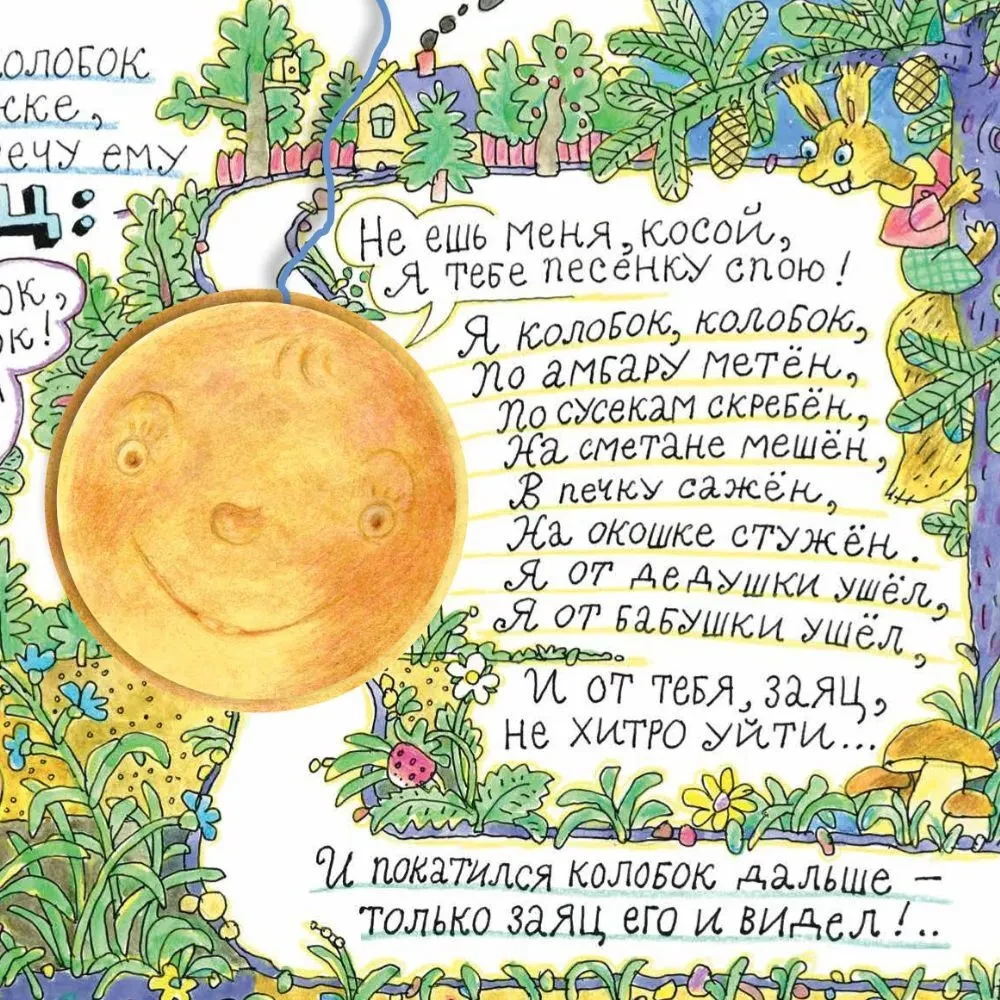 колобок
ечу ему
Не ешь меня, косой,
Я тебе песенку спою!
Я колобок, колобок,
По амбару метён,
По сусекам скребён,
На сметане мешён,
В печку сажён,
На окошке стужён.
Я от дедушки ушёл,
Я от бабушки ушёл,
И от тебя, заяц,
не хитро уйти...
И покатился колобок дальше –
только заяц его и видел!..